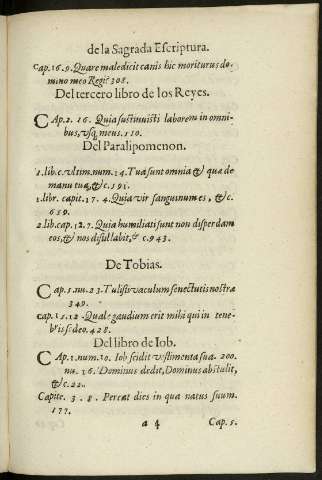 de la Sagrada Escriptura.
Cap.16.9.Quare maledicit canis hic moriturus do-
mino meo Regi? 308.
Del tercero libro de los Reyes.
CAp.2. 16. Quia sustinuisti laborem in omni-
bus, vsq; meus.110.
Del Paralipomenon.
1.lib.c.vltim.num.14.Tua sunt omnia & quæ de
manu tua, &c.191.
1.libr. capit.17.4.Quia vir sanguinum es, &c.
659.
2.lib.cap.12.7.Quia humiliati sunt non disperdam
eos, & nos distillabit, & c.943.
De Tobias.
Cap.5.nu.23.Tulisti vaculum senectutis nostræ
349.
cap.15.12.Quale gaudium erit mihi qui in tene-
bris sedeo.428.
Del libro de Iob.
CAp.1.num.20. Iob scidit vestimenta sua. 200.
nu. 16. Dominus dedit, Dominus abstulit,
&c.22.
Capite. 3 . 8 . Pereat dies in qua natus suum.
177.
a 4 Cap. 5.